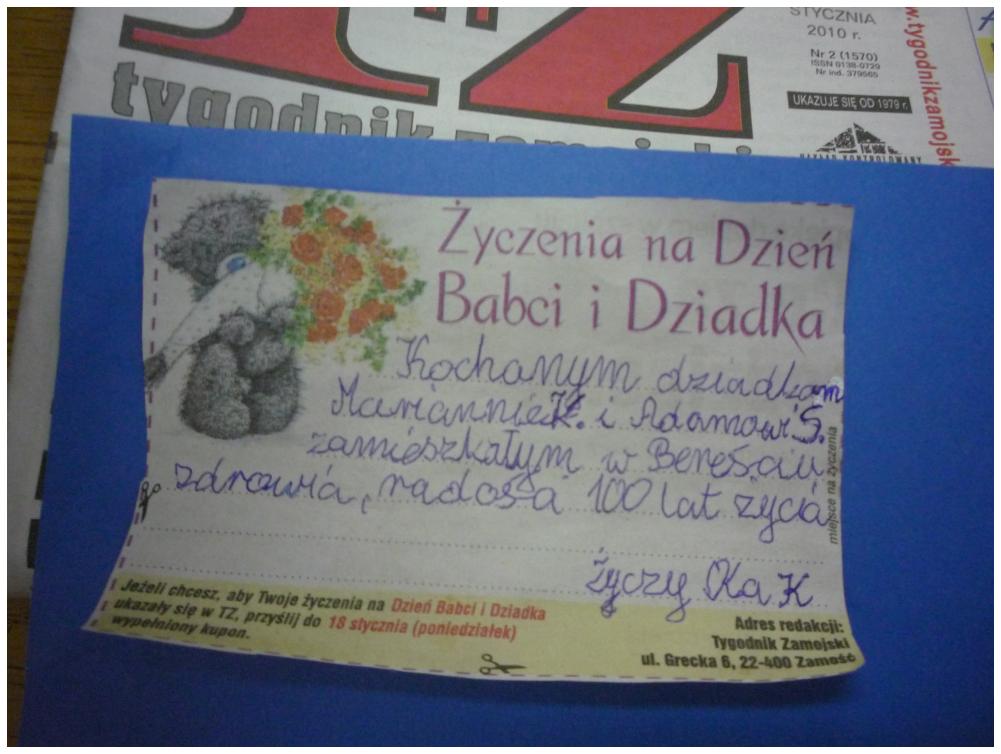 TZ
tygodnik zamojski
STYCZNIA
2010 r.
Nr 2 (1570)
ISSN 0138-0729
Nr ind. 379565
UKAZUJE SIĘ OD 1979 r.
w.tygodnikzamojsk
Życzenia na Dzień
Babci i Dziadka
Kochanym dziadkom
Mariannie K. i Adamowi S.
zamieszkałym w Bereściu
zdrowia, radości 100 lat życia
życzy Ola K
miejsce na życzenia
Jeżeli chcesz, aby Twoje życzenia na Dzień Babci i Dziadka
ukazały się w TZ, przyślij do 18 stycznia (poniedziałek)
wypełniony kupon.
Adres redakcji:
Tygodnik Zamojski
ul. Grecka 6, 22-400 Zamość